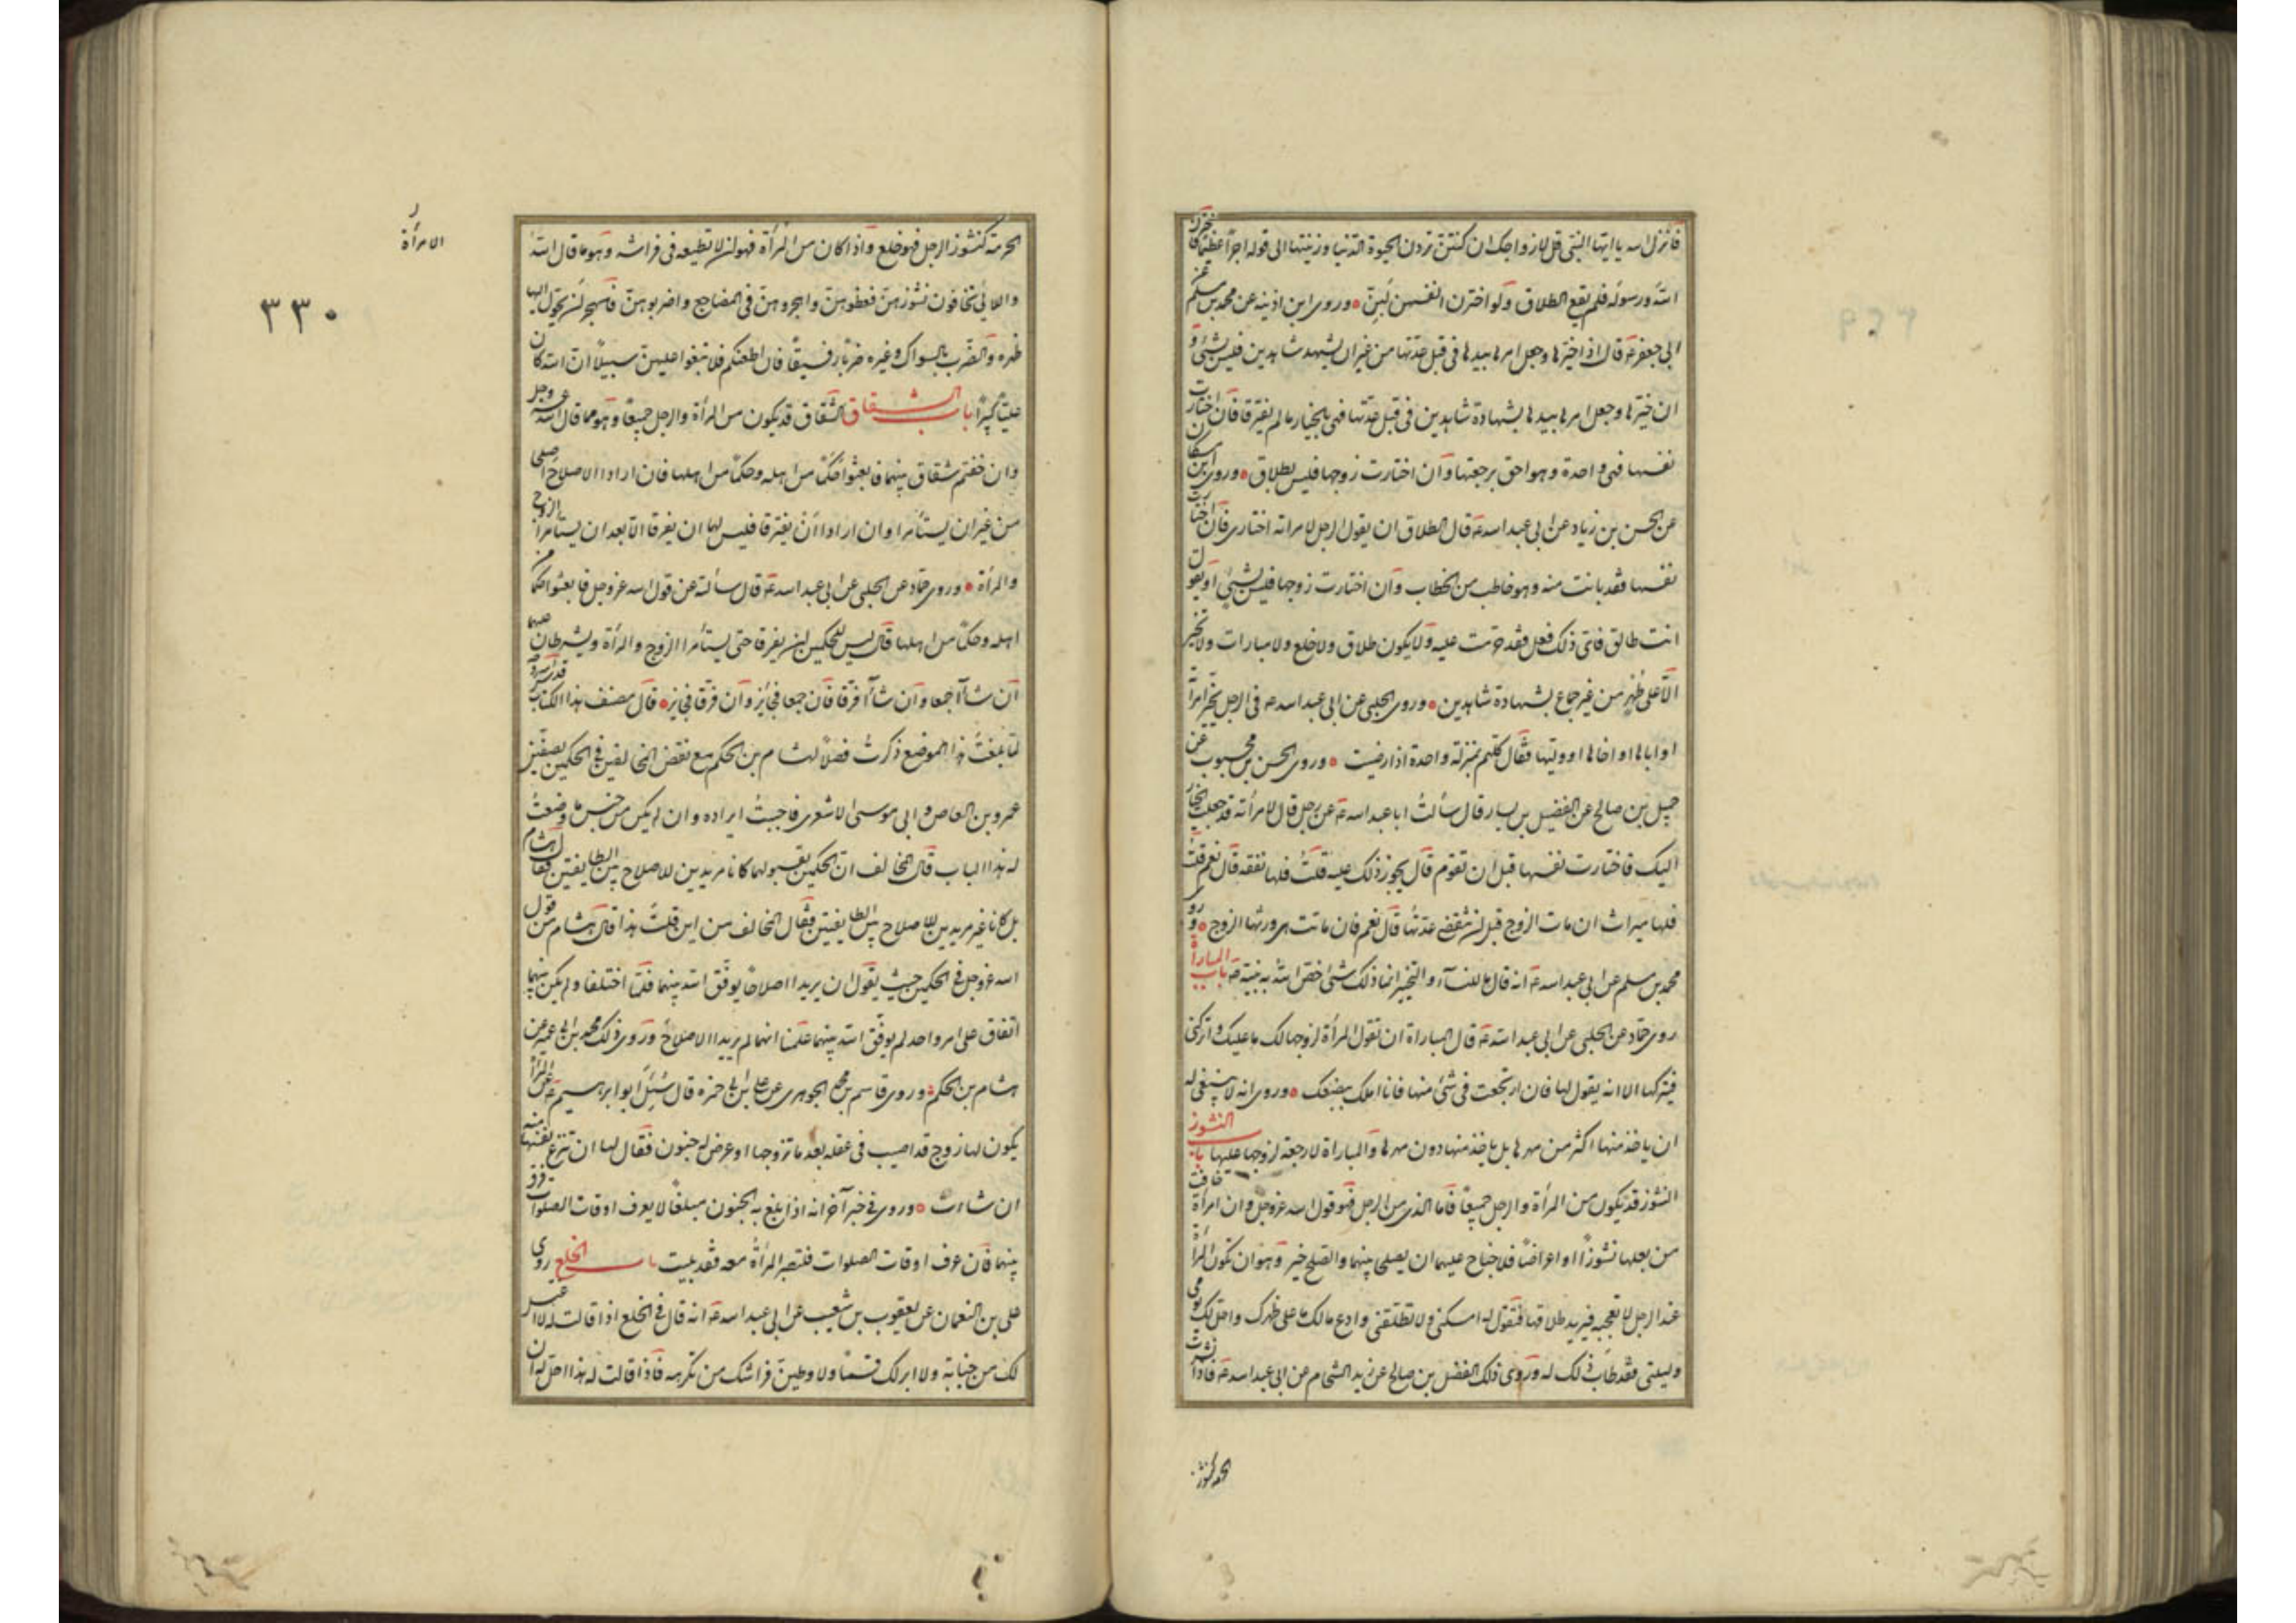 فانزل الله يا ايها النبي قل لازواجك ان كنتن تردن الحيوة الدنيا وزينتها الى قوله اجرا عظيما فاخترن
الله ورسوله فلم يقع الطلاق ولو اخترن انفسهن لبن وروى ابن اذينه عن محمد بن مسلم عن
ابي جعفر ع قال اذا خيرها وجعل امرها بيدها في قبل عدتها من غير ان يشهد شاهدين فليس بشئ و
ان خيرها وجعل امرها بيدها بشهادة شاهدين في قبل عدتها فهي بالخيار ما لم يفترقا فان اختارت
نفسها فهي واحدة وهو احق برجعتها وان اختارت زوجها فليس بطلاق وروى ابن مسكان
عن الحسن بن زياد عن ابي عبد الله ع قال الطلاق ان يقول الرجل لامراته اختاري فان اختارت
نفسها فقد بانت منه وهو خاطب من الخطاب وان اختارت زوجها فليس بشئ او يقول
انت طالق فاتى ذلك فعل فقد حرمت عليه ولا يكون طلاق ولا خلع ولا مبارات ولا تخير
الا على طهر من غير جماع بشهادة شاهدين وروى الحلبي عن ابي عبد الله ع في الرجل يخير امراته
او اباها او اخاها او وليها فقال كلهم بمنزلة واحدة اذا رضيت وروى الحسن بن محبوب عن
جميل بن صالح عن الفضيل بن يسار قال سألت ابا عبد الله ع عن رجل قال لامرأته قد جعلت الخيار
اليك فاختارت نفسها قبل ان تقوم قال يجوز ذلك عليه قلت فلها نفقه قال نعم قلت
فلها ميراث ان مات الزوج قبل ان تنقضي عدتها قال نعم فان ماتت هي ورثها الزوج وروى
محمد بن مسلم عن ابي عبد الله ع انه قال ما للنسآء والتخيير انما ذلك شئ خص الله به نبيه ص باب المباراة
روى حماد عن الحلبي عن ابي عبد الله ع قال المباراة ان تقول المرأة لزوجها لك ما عليك واتركني
فيتركها الا انه يقول لها فان ارتجعت في شئ منها فانا املك ببضعك وروى انه لا ينبغي له
ان ياخذ منها اكثر من مهرها بل ياخذ منها دون مهرها والمباراة لا رجعة لزوجها عليها باب النشوز
النشوز قد يكون من المرأة والرجل جميعا فاما الذي من الرجل فهو قول الله عز وجل وان امرأة خافت
من بعلها نشوزا او اعراضا فلا جناح عليهما ان يصلحا بينهما والصلح خير وهو ان تكون المرأة
عند الرجل لا تعجبه فيريد طلاقها فتقول له امسكني ولا تطلقني وادع ما لك ما على ظهرك واحل لك يومي
وليلتي فقد طاب ذلك له وروى ذلك المفضل بن صالح عن زيد الشحام عن ابي عبد الله ع فاذا نشزت
المرأة كنشوز
الامرأة
٣٣٠
المرأة كنشوز الرجل فهو خلع واذا كان من المرأة فهو ان لا تطيعه في فراشه وهو ما قال الله
واللاتي تخافون نشوزهن فعظوهن واهجروهن في المضاجع واضربوهن فالهجر ان يحول اليها
ظهره والضرب بالسواك وغيره ضربا رفيقا فان اطعنكم فلا تبغوا عليهن سبيلا ان الله كان
عليا كبيرا باب الشقاق الشقاق قد يكون من المرأة والرجل جميعا وهو مما قال الله عز وجل
وان خفتم شقاق بينهما فابعثوا حكما من اهله وحكما من اهلها فان ارادا الاصلاح اصلحا
من غير ان يستأمرا وان ارادا ان يفترقا فليس لهما ان يفرقا الا بعد ان يستأمرا الزوج
والمرأة وروى حماد عن الحلبي عن ابي عبد الله ع قال سألته عن قول الله عز وجل فابعثوا حكما من
اهله وحكما من اهلها قال ليس للحكمين ان يفرقا حتى يستأمرا الزوج والمرأة ويشرطان عليهما
ان شاآ جمعا وان شاآ فرقا فان جمعا فجائز وان فرقا فجائز قال مصنف هذا الكتاب قدس سره
لما بلغت هذا الموضع ذكرت فصلا لهشام بن الحكم مع بعض المخالفين في الحكمين بصفين
عمرو بن العاص وابي موسى الاشعري فاحببت ايراده وان لم يكن من جنس ما وضعت
له هذا الباب قال المخالف ان الحكمين لقبولهما كانا مريدين للاصلاح بين الطايفتين فقال هشام
بل كانا غير مريدين للاصلاح بين الطايفتين فقال المخالف من اين قلت هذا قال هشام من قول
الله عز وجل في الحكمين حيث يقول ان يريدا اصلاحا يوفق الله بينهما فلما اختلفا ولم يكن بينهما
اتفاق على امر واحد لم يوفق الله بينهما علمنا انهما لم يريدا الاصلاح وروى ذلك محمد بن ابي عمير عن
هشام بن الحكم وروى قاسم بن محمد الجوهري عن علي بن ابي حمزه قال سئل ابو ابراهيم ع عن المرأة
يكون لها زوج قد اصيب في عقله بعد ما تزوجها او عرض له جنون فقال لها ان تنزع نفسها منه
ان شاءت وروى في خبر آخر انه اذا بلغ به الجنون مبلغا لا يعرف اوقات الصلوات فرق
بينهما فان عرف اوقات الصلوات فلتصبر المرأة معه فقد بليت باب الخلع روى
علي بن النعمان عن يعقوب بن شعيب عن ابي عبد الله ع انه قال في الخلع اذا قالت له لا اغتسل
لك من جنابة ولا ابر لك قسما ولا وطين فراشك من تكرهه فاذا قالت له هذا احل له ان